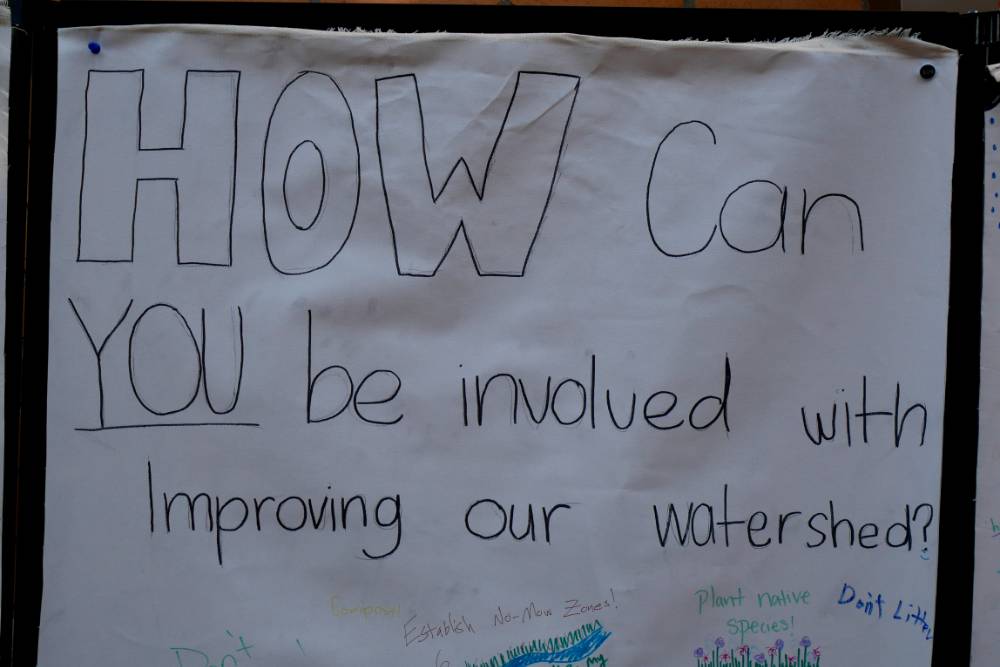 HOW Can
YOU be involved with
Improving our watershed?
Compost!
Establish No-Mow Zones!
Plant native
species!
Don't Litter
Don't
my